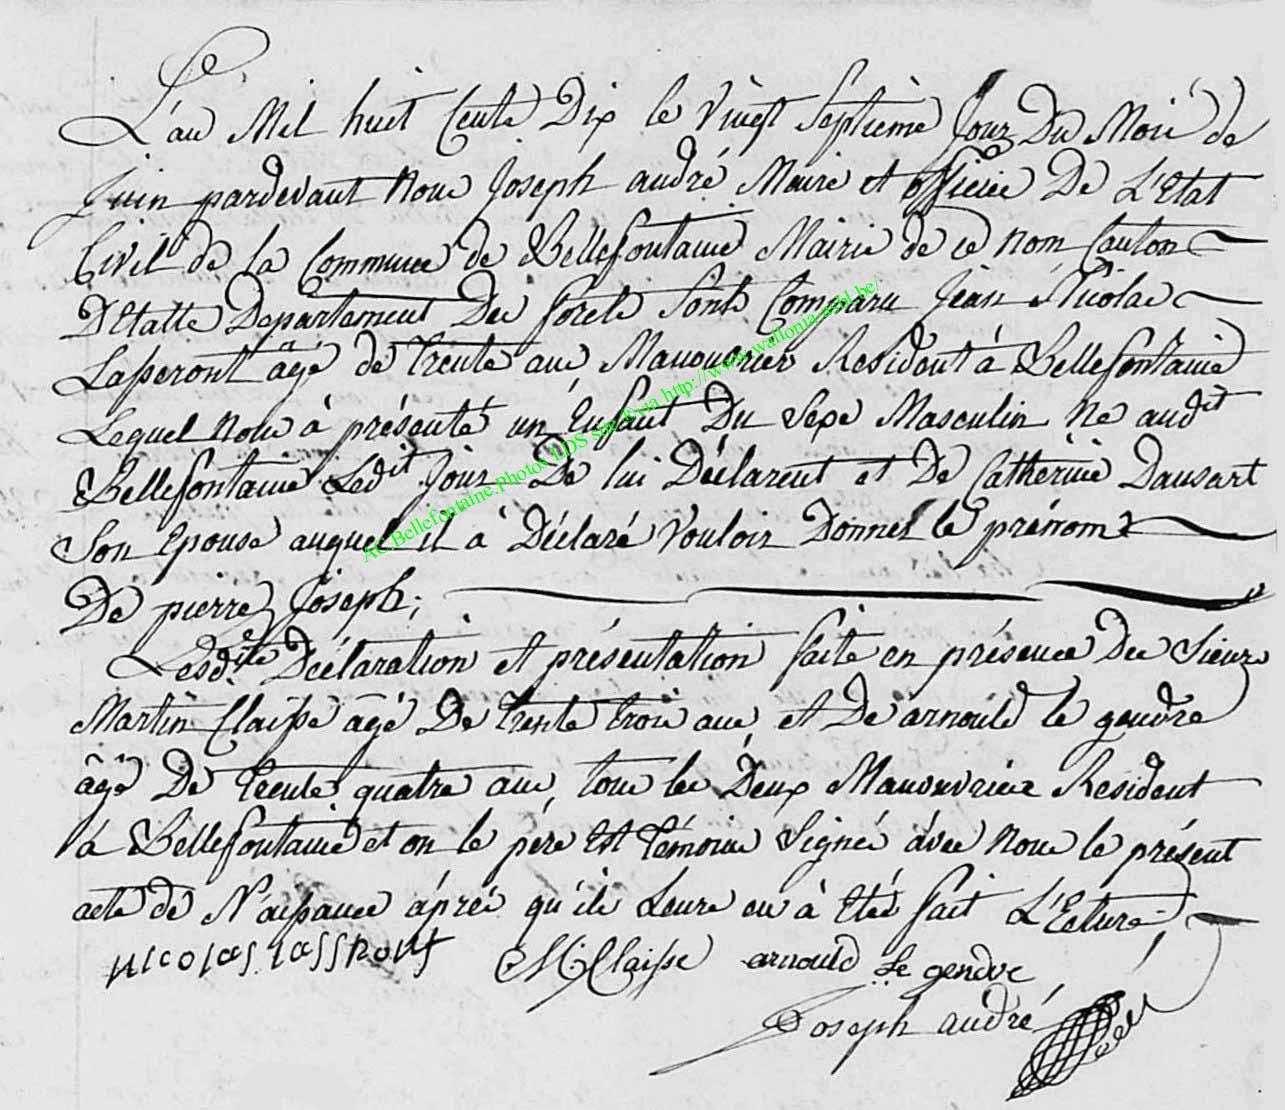 L'an Mil huit Cente Dix le Vingt Septieme Jour Du Mois de
Juin pardevant Nous Joseph andré Maire et officier De L'Etat
Civil de La Commune de Bellefontaine Mairie de ce nom Canton
D'Etalle Departement Des forets Sont Comparu Jean Nicolas
Lasseront âgé de trente ans Manouvrier Resident à Bellefontaine
Lequel nous à présenté un Enfant Du Sexe Masculin Né audit
Bellefontaine Ledit Jour De lui Déclarent et De Catherine Dausart
Son Epouse auquel il à Déclaré Vouloir Donner le prénom
De pierre Joseph;
Lesdite Déclaration et présentation faite en présence Des Sieurs
Martin Claisse âgé De trente trois ans, et De arnould le gendre
âgé De trente quatre ans, tous les Deux Manouvriers Resident
à Bellefontaine et on le père Et témoins Signés avec nous le présent
acte de Naissance áprés qu'ils Leurs en à Etés fait L'Ecture.
Nicolas lassront M Claisse arnould Le gendre
Joseph andré
AC Bellefontaine.Photos LDS site Evta http://www.wallonia-asbl.be/